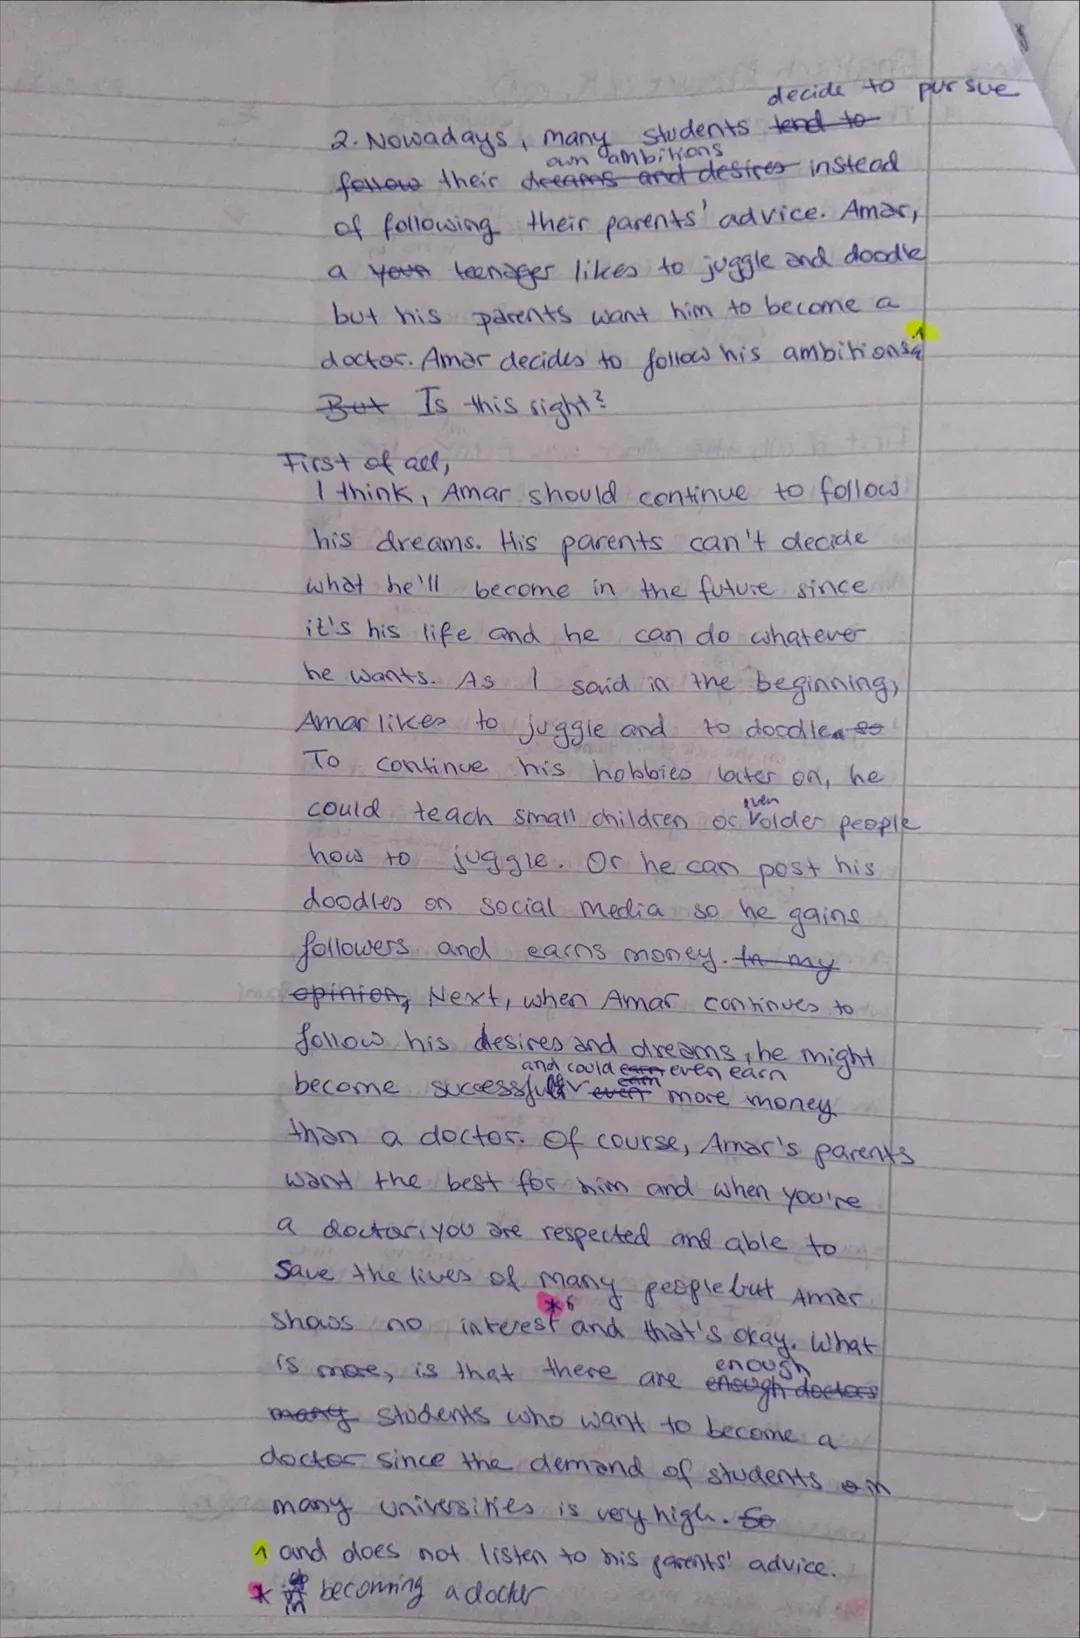 decide to pursue
2. Nowadays, many students tend to
own ambitions
follow their dreams and desires instead
of following their parents' advice. Amar,
a teenager likes to juggle and doodle
but his parents want him to become a
doctor. Amar decides to follow his ambitions 1
But Is this right?
First of all,
I think, Amar should continue to follow
his dreams. His parents can't decide
what he'll become in the future since
it's his life and he can do whatever
he wants. As I said in the beginning,
Amar likes to juggle and to doodle. so
To continue his hobbies later on, he
even
could teach small children or older people
how to juggle. Or he can post his
doodles on social media so he gains
followers and earns money. In my
opinion, Next, when Amar continues to
follow his desires and dreams, he might
and could earn even earn
become successful even earn more money
than a doctor. Of course, Amar's parents
want the best for him and when you're
a doctor, you are respected and able to
save the lives of many people but Amar
*
shows no interest and that's okay. What
enough
is more, is that there are enough doctors
many students who want to become a
doctor since the demand of students in
many universities is very high. So
1 and does not listen to his parents' advice.
* in becoming a doctor